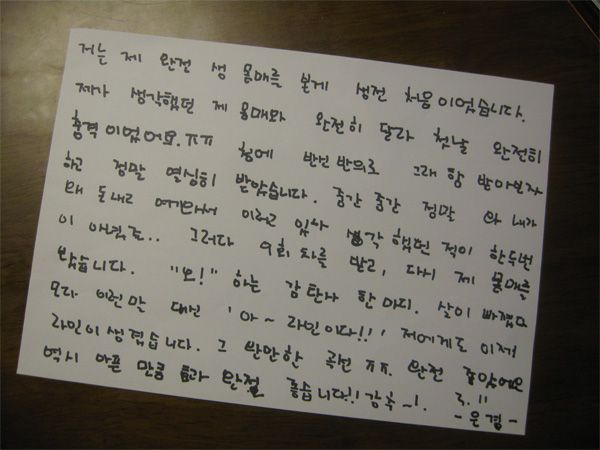 저는 제 완전 생 몸매를 본게 생전 처음이었습니다.
제가 생각했던 제 몸매와 완전히 달라 첫날 완전히
충격이었어요.ㅠㅠ 첨에 반신반의로 그래 함 받아보자
하고 정말 열심히 받았습니다. 중간 중간 정말 와 내가
왜 돈내고 여기와서 이러고 있나 생각했던 적이 한두번
이 아녔죠.. 그러다 9회차를 받고, 다시 제 몸매를
봤습니다. "오!" 하는 감탄사 한마디. 살이 빠졌다
모다 이런말 대신 '아~ 라인이다!!' 저에게도 이제
라인이 생겼습니다. 그 완만한 곡선 ㅠㅠ 완전 좋았어요
역시 아픈 만큼 효과 만점 좋습니다!! 강추~!.
-은경-